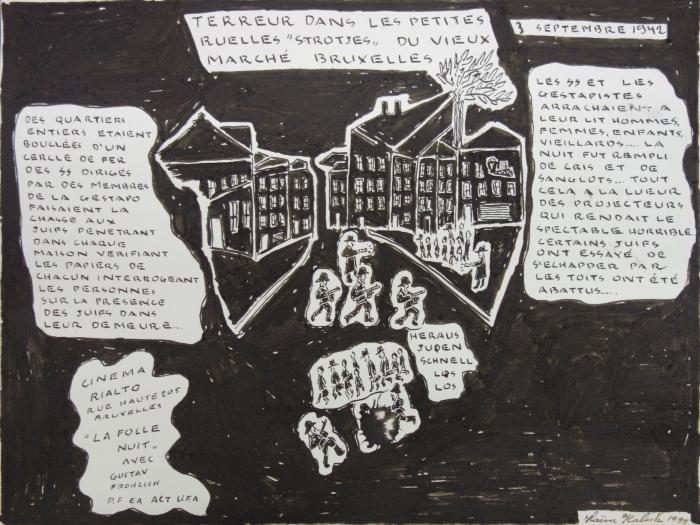 TERREUR DANS LES PETITES
RUELLES "STROTJES" DU VIEUX
MARCHÉ BRUXELLES
3 SEPTEMBRE 1942
DES QUARTIERS
ENTIERS ETAIENT
BOUCLÉES D'UN
CERCLE DE FER
DES SS DIRIGÉS
PAR DES MEMBRES
DE LA GESTAPO
FAISAIENT LA
CHASSE AUX
JUIFS PENETRANT
DANS CHAQUE
MAISON VERIFIANT
LES PAPIERS DE
CHACUN INTERROGEANT
LES PERSONNES
SUR LA PRESENCE
DES JUIFS DANS
LEUR DEMEURE...
LES SS ET LES
GESTAPISTES
ARRACHAIENT A
LEUR LIT HOMMES,
FEMMES, ENFANTS,
VIEILLARDS.... LA
NUIT FUT REMPLI
DE CRIS ET DE
SANGLOTS... TOUT
CELA A LA LUEUR
DES PROJECTEURS
QUI RENDAIT LE
SPECTABLE HORRIBLE.
CERTAINS JUIFS
ONT ESSAYÉ DE
S'ECHAPPER PAR
LES TOITS ONT ÉTÉ
ABATTUS....
HERAUS
JUDEN
SCHNELL
LOS
LOS
CINEMA
RIALTO
RUE HAUTE 205
BRUXELLES
"LA FOLLE
NUIT"
AVEC
GUSTAV
FRÖHLICH
P.F EA ACT UFA